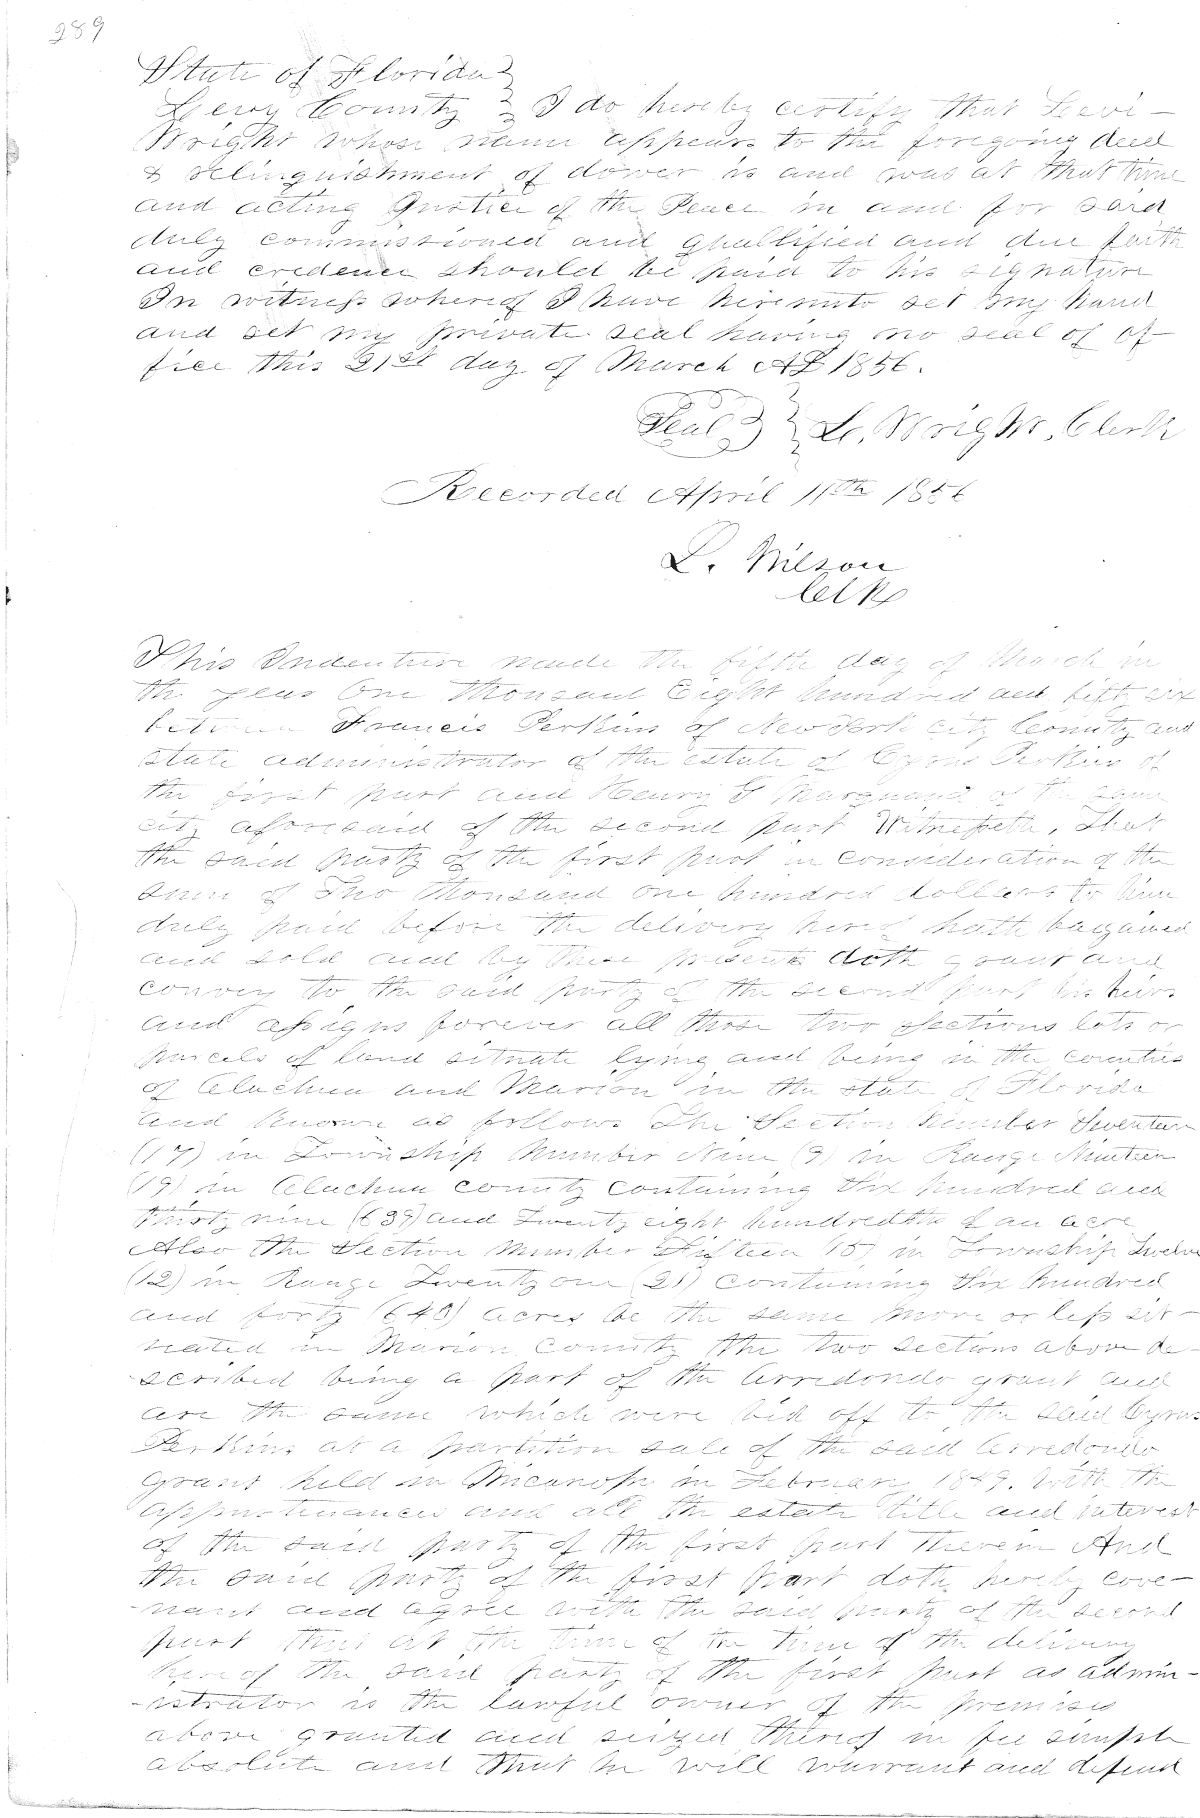 289
State of Florida
Levy County I do hereby certify that Levi
Wright whose name appears to the foregoing deed
& relinquishment of dower is and was at that time
and acting Justice of the Peace in and for said
duly commissioned and quallified and due faith
and credence should be paid to his signature
In witness whereof I have hereunto set my hand
and set my private seal having no seal of of-
fice this 21st day of March AD 1856.
Seal L. Wright, Clerk
Recorded April 11th 1856
L. Wilson
Clk
This Indenture made the fifth day of March in
the year One thousand Eight hundred and fifty six
between Francis Perkins of New York city County and
state administrator of the estate of Cyrus Perkins of
the first part and Henry G Marquand of the same
city aforesaid of the second part Witnesseth, That
the said party of the first part in consideration of the
sum of Two thousand one hundred dollars to him
duly paid before the delivery hereof hath bagained
and sold and by these presents doth grant and
convey to the said party of the second part his heirs
and assigns forever all those two sections lots or
parcels of land situate lying and being in the counties
of Alachua and Marion in the state of Florida
and known as follows The Section number Seventeen
(17) in Township Number Nine (9) in Range Nineteen
(19) in Alachua county containing Six hundred and
thirty nine (639) and Twenty eight hundredths of an acre
Also the Section number Fifteen (15) in Township Twelve
(12) in Range Twenty one (21) containing Six hundred
and forty (640) acres be the same more or less sit-
uated in Marion County the two sections above de-
scribed being a part of the Arredondo grant and
are the same which were bid off to the said Cyrus
Perkins at a partition sale of the said Arredondo
grant held in Micanopy in February 1849. With the
appurtenances and all the estate title and interest
of the said party of the first part therein And
the said party of the first part doth hereby cove-
-nant and agree with the said party of the second
part that at the time of the time of the delivery
hereof the said party of the first part as admin-
-istrator is the lawful owner of the premises
above granted and seized thereof in fee simple
absolute and that he will warrant and defend